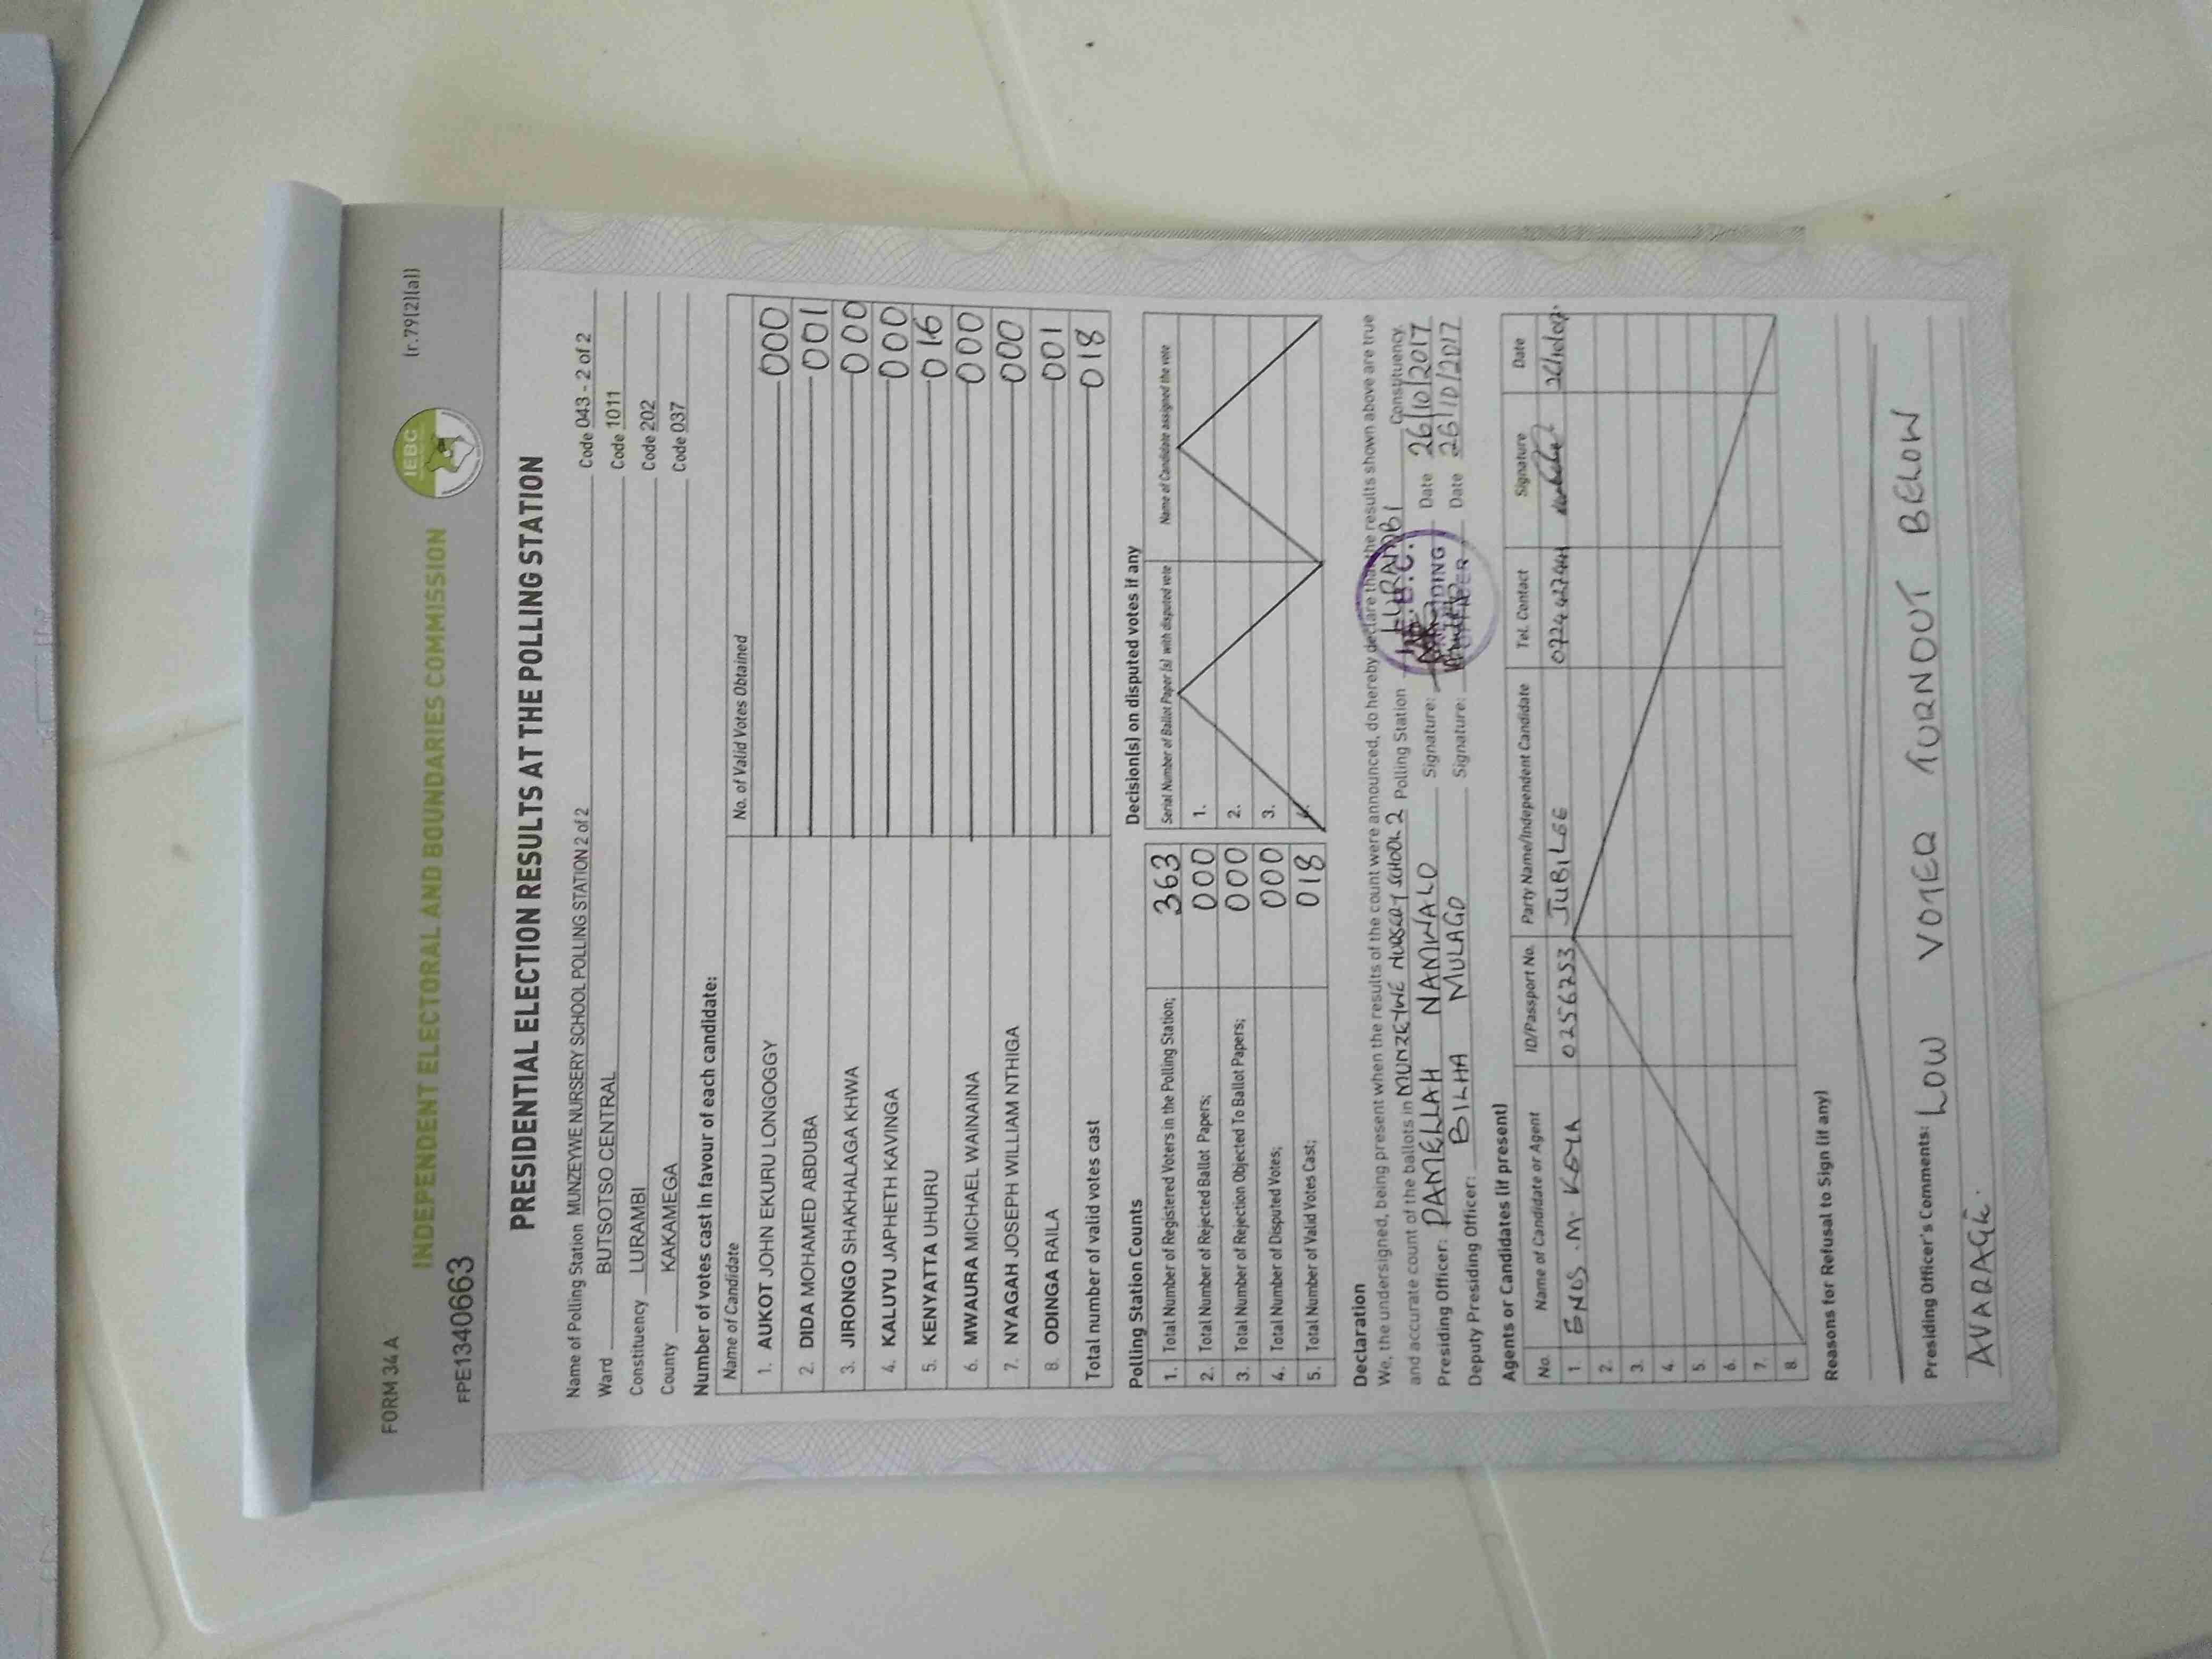 FORM 34 A
(r.79(2)(a))
IEBC
INDEPENDENT ELECTORAL AND BOUNDARIES COMMISSION
FPE1340663
PRESIDENTIAL ELECTION RESULTS AT THE POLLING STATION
Name of Polling Station MUNZEYWE NURSERY SCHOOL POLLING STATION 2 of 2 Code 043 - 2 of 2
Ward BUTSOTSO CENTRAL Code 1011
Constituency LURAMBI Code 202
County KAKAMEGA Code 037
Number of votes cast in favour of each candidate:
Name of Candidate No. of Valid Votes Obtained
1. AUKOT JOHN EKURU LONGOGGY 000
2. DIDA MOHAMED ABDUBA 001
3. JIRONGO SHAKHALAGA KHWA 000
4. KALUYU JAPHETH KAVINGA 000
5. KENYATTA UHURU 016
6. MWAURA MICHAEL WAINAINA 000
7. NYAGAH JOSEPH WILLIAM NTHIGA 000
8. ODINGA RAILA 001
Total number of valid votes cast 018
Polling Station Counts
1. Total Number of Registered Voters in the Polling Station; 363
2. Total Number of Rejected Ballot Papers; 000
3. Total Number of Rejection Objected To Ballot Papers; 000
4. Total Number of Disputed Votes; 000
5. Total Number of Valid Votes Cast; 018
Decision(s) on disputed votes if any
Serial Number of Ballot Paper (s) with disputed vote Name of Candidate assigned the vote
1.
2.
3.
Declaration
We, the undersigned, being present when the results of the count were announced, do hereby declare that the results shown above are true
and accurate count of the ballots in MUNZEYWE NURSERY SCHOOL 2 Polling Station LURAMBI Constituency.
Presiding Officer: PAMELLAH NAMWALO Signature: Date 26/10/2017
Deputy Presiding Officer: BILHA MULAGO Signature: Date 26/10/2017
I.E.B.C.
Agents or Candidates (if present)
No. Name of Candidate or Agent ID/Passport No. Party Name/Independent Candidate Tel. Contact Signature Date
1. ENOS .M. 0256253 JUBILEE
2.
3.
4.
5.
6.
7.
8.
Reasons for Refusal to Sign (if any)
Presiding Officer's Comments: LOW VOTER TURNOUT BELOW
AVARAGE.